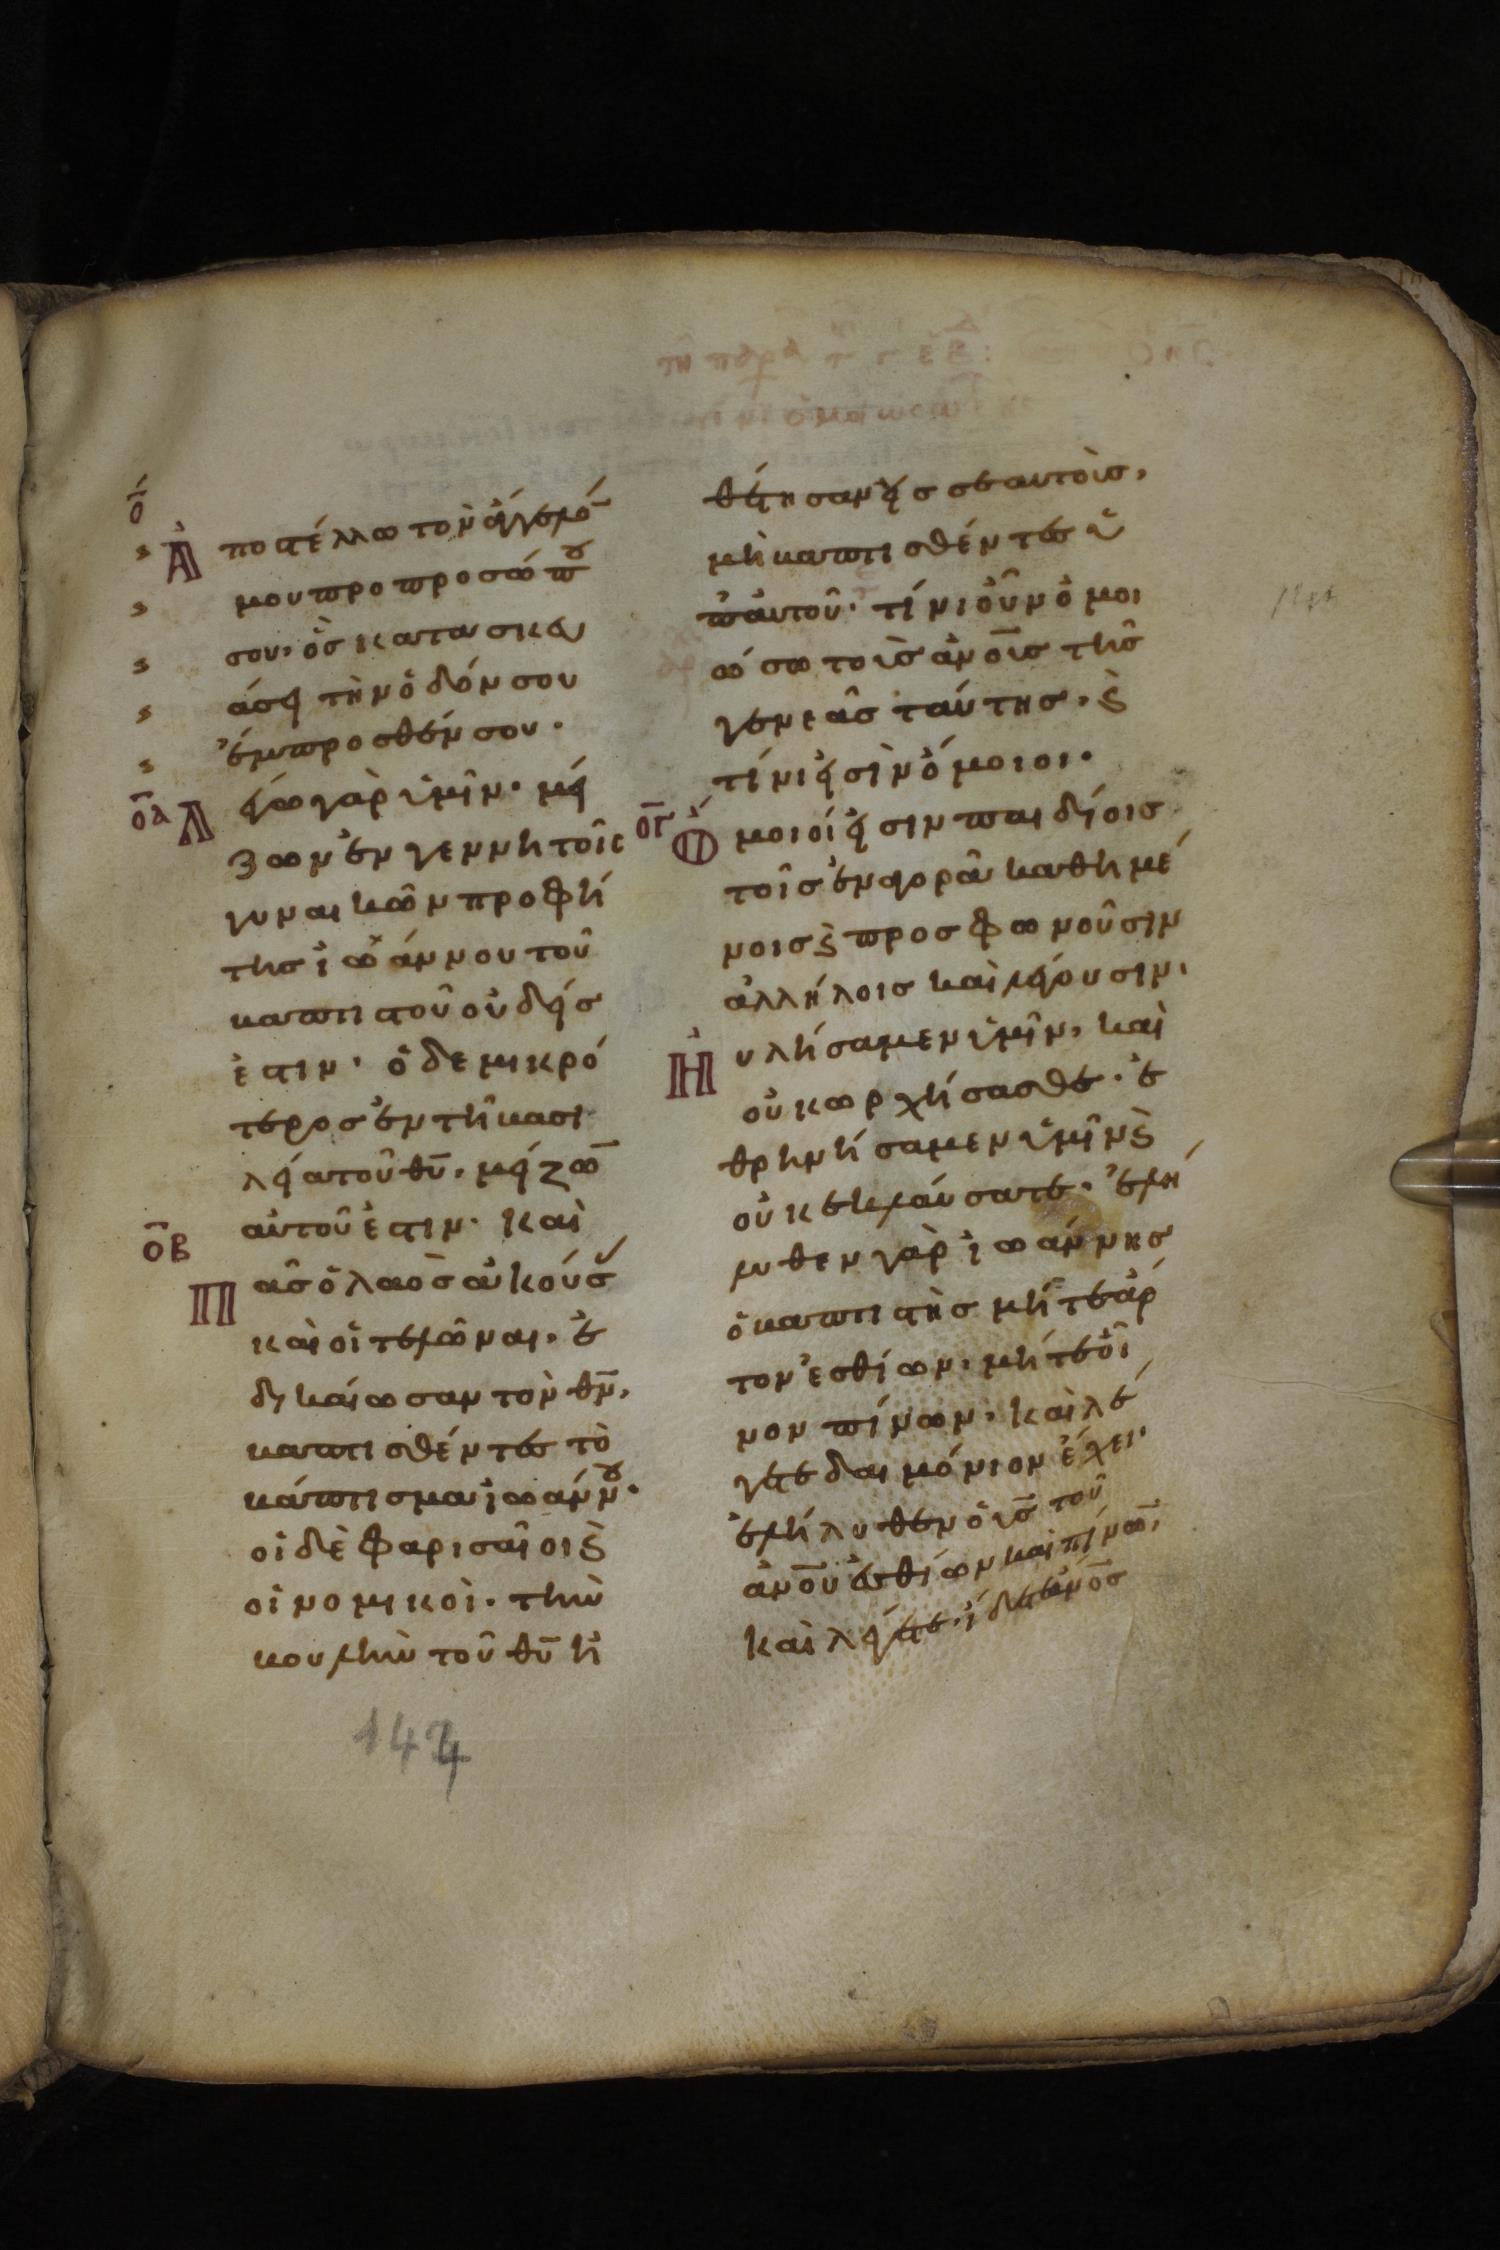 ο̅
Ἀποστέλλω τὸν ἄγγελό̅
μου προ προσώπου
σου· ὃς κατασκευ
άσει τὴν ὁδόν σου
ἔμπροσθέν σου·
ο̅α̅
Λέγω γὰρ ὑμῖν· μεί
ζων ἐν γεννητοῖς
γυναικῶν προφή
της ἰωάννου τοῦ
βαπτιστοῦ οὐδείς
ἐστιν· ὁ δε μικρό
τερος ἐν τῆ βασι
λεία τοῦ θ̅υ̅, μείζω̅
αὐτοῦ ἐστιν· καὶ
ο̅β̅
Πᾶς ὁ λαὸς ἀκούσ
καὶ οἱ τελῶναι, ἐ
δικαίωσαν τὸν θ̅ν̅,
βαπτισθέντες τὸ
βάπτισμα ἰωάννου·
οἱ δὲ φαρισαῖοι ϗ
οἱ νομικοὶ· τὴν
βουλὴν τοῦ θ̅υ̅ ἠ
θέτησαν εἰς ἑαυτοὺς,
μὴ βαπτισθέντες ὑ
π' ἀυτοῦ· τίνι οὖν ὁμοι
ώσω τοὺς ἀν̅ο̅υς τῆς
γενεᾶς ταύτης, ϗ
τίνι εἰσὶν ὅμοιοι·
ο̅γ̅
Ὅμοιοί εἰσιν παιδίοις
τοῖς ἐν ἀγορᾶ καθημέ
νοις ϗ προσφωνοῦσιν
ἀλλήλοις καὶ λέγουσιν,
Ἠυλήσαμεν ὑμῖν, καὶ
οὐκ ὠρχήσασθε· ἐ
θρηνήσαμεν ὑμῖν ϗ
οὐκ ἐκλαύσατε· ἐλή
λυθεν γὰρ ἰωάννης
ὁ βαπτιστὴς μήτε ἄρ
τον ἐσθίων, μήτε οἶ
νον πίνων, καὶ λέ
γετε δαιμόνιον ἔχει·
ἐλήλυθεν ὁ υ̅ς̅ τοῦ
ἀν̅ο̅υ ἐσθίων καὶ πίνω̅,
καὶ λέγετε· ἰδοὺ ἀν̅ο̅ς
147
4